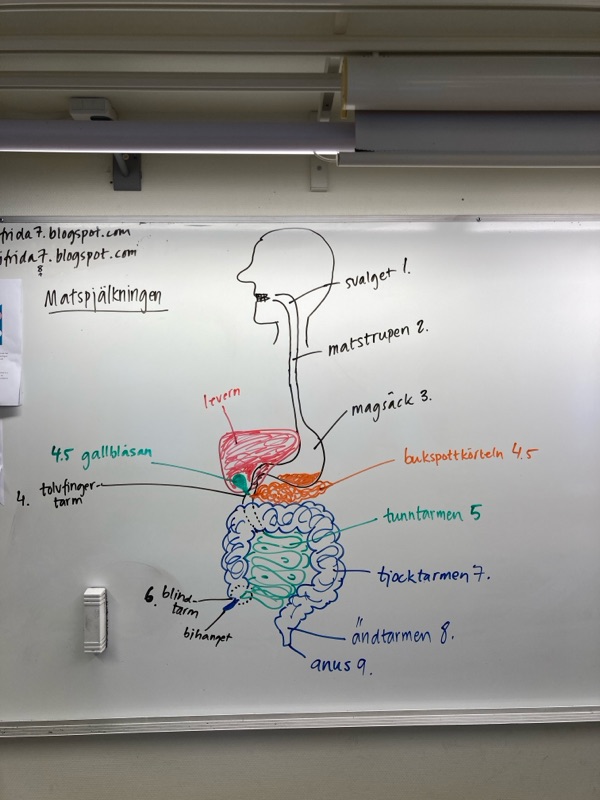 frida7.blogspot.com
ifrida7.blogspot.com
8
Matspjälkningen
svalget 1.
matstrupen 2.
levern
magsäck 3.
4.5 gallblåsan
bukspottkörteln 4.5
4. tolvfinger-
tarm
tunntarmen 5
tjocktarmen 7.
6. blind-
tarm
bihanget
ändtarmen 8.
anus 9.